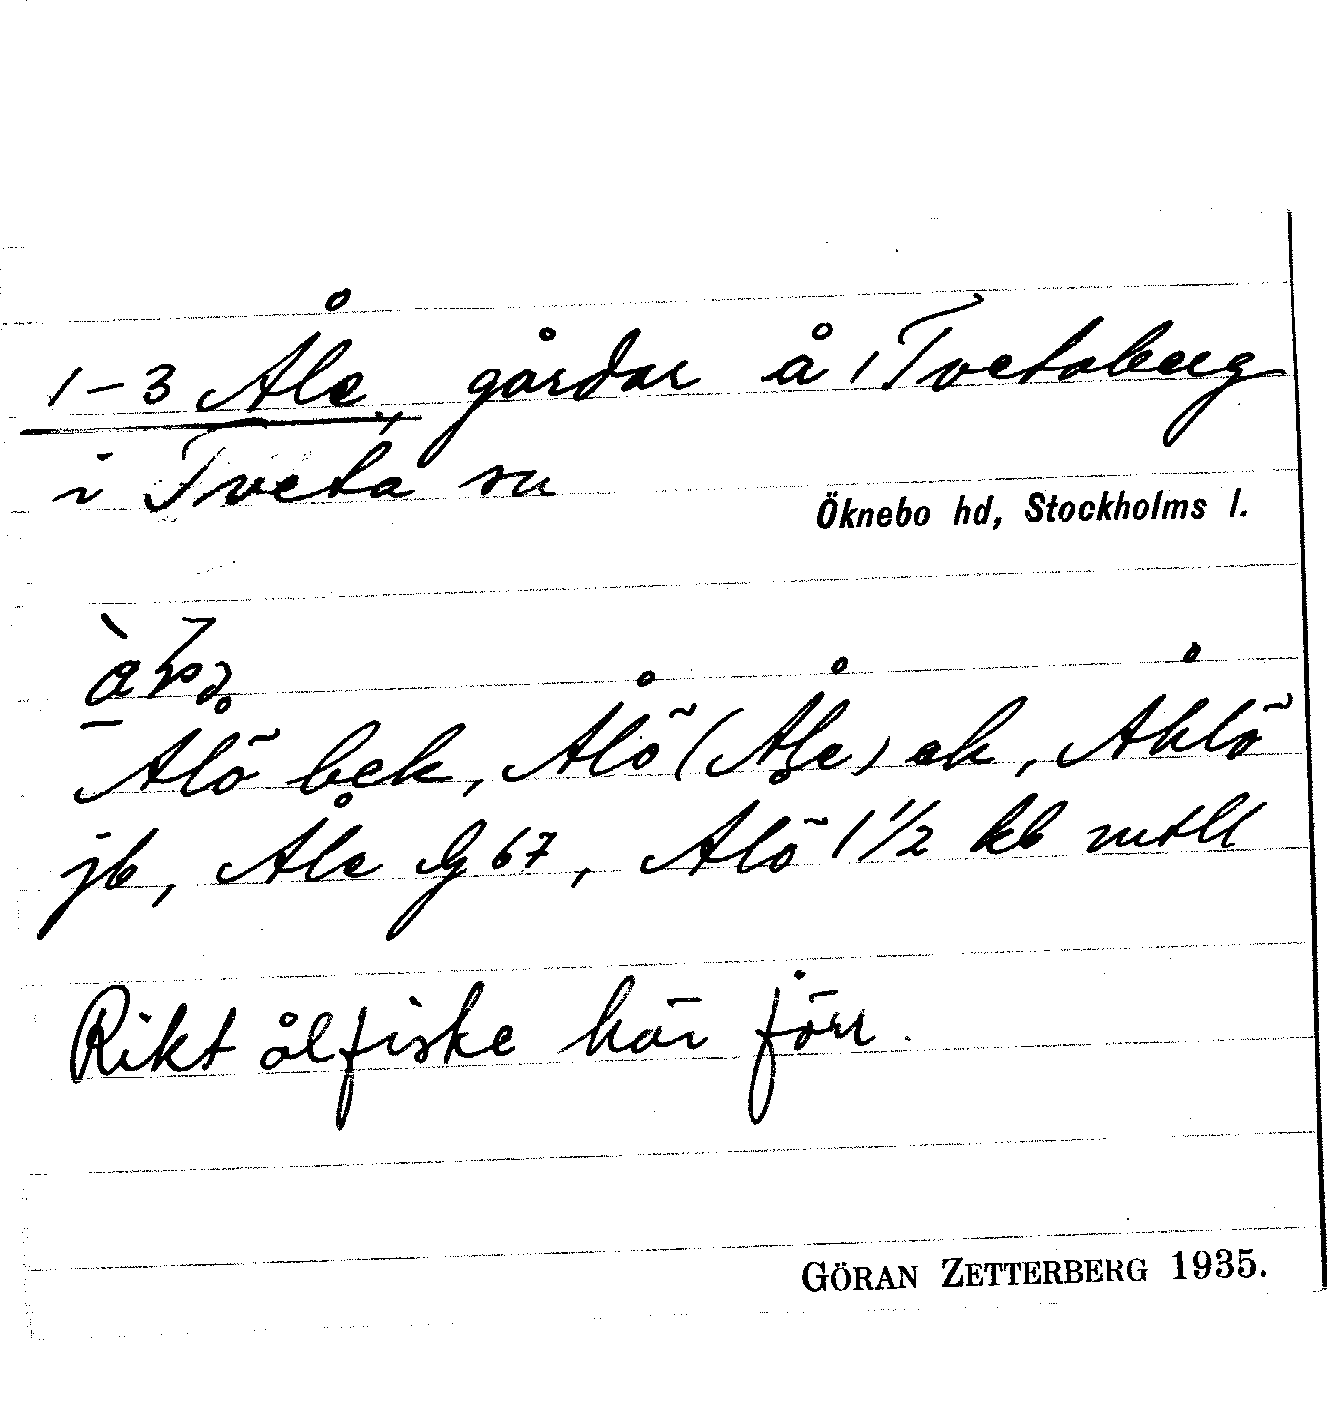 1-3 Åle, gårdar å 1 Tvetaberg
i Tveta sn
Öknebo hd, Stockholms l.
Alö bek, Ålö (Åle) ek, Åhlö
jb, Åle Gg 67, Alö 1 1/2 kb mtll
Rikt ålfiske här förr.
GÖRAN ZETTERBERG 1935.